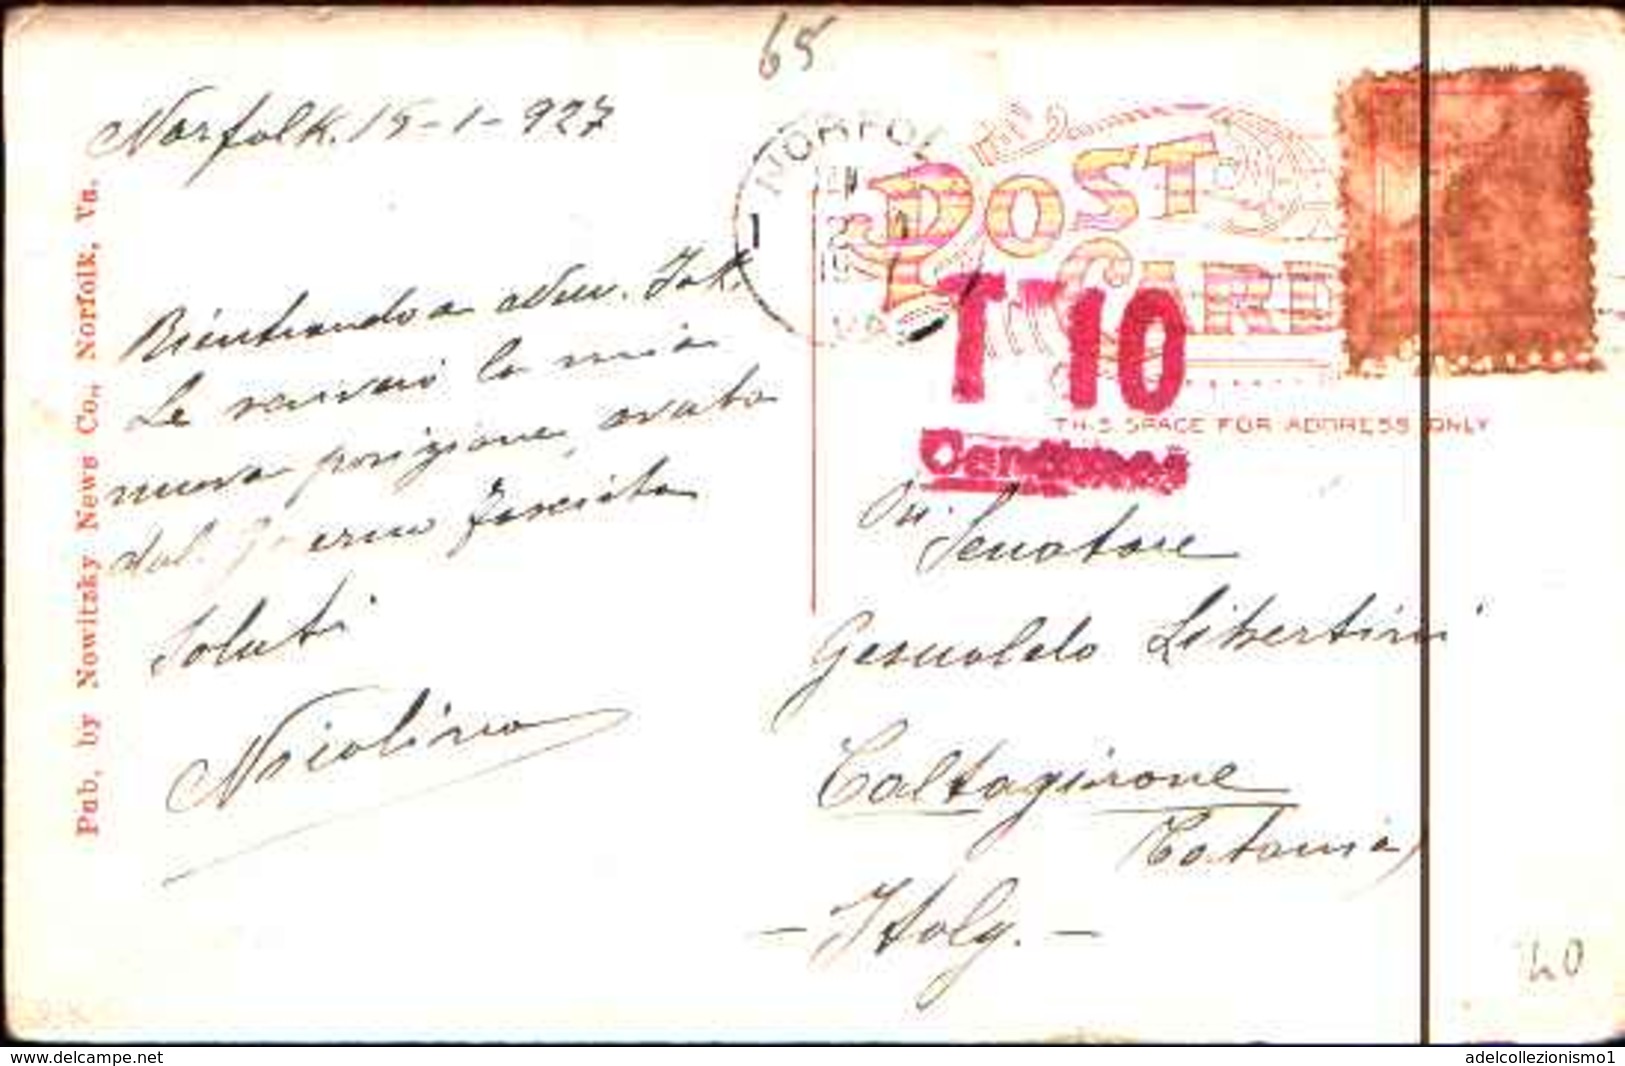 65
Norfolk. 15-1-927
NORFOL
POST
CARD
T 10
Centimes
THIS SPACE FOR ADDRESS ONLY
Rientrando a New. Jok.
Le scriverò la mia
nuova posizione, avuta
dal. Governo fascista
Saluti
Nicolino
On. Senatore
Gesualdo Libertini
Caltagirone
Catania)
- Italy. -
Pub. by Nowitzky News Co., Norfolk, Va.
40
www.delcampe.net
adelcollezionismo1